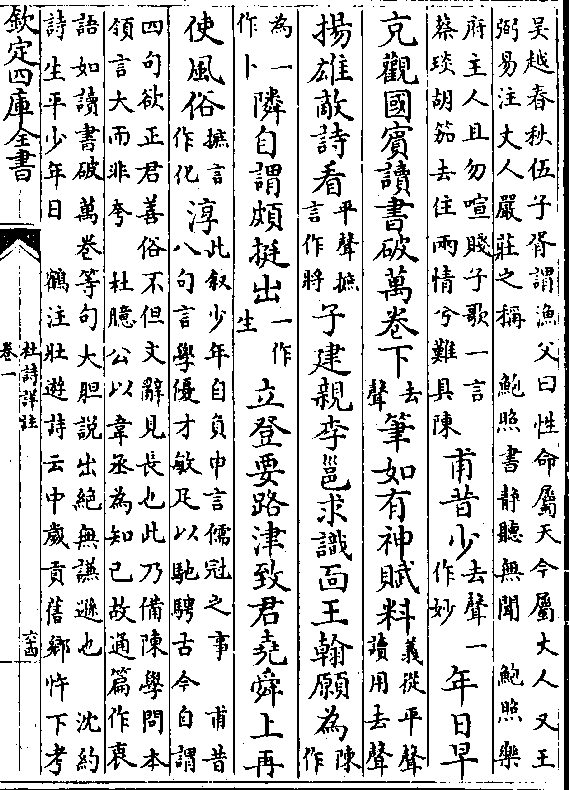 吳越春秋伍子胥謂漁父曰性命屬天今屬丈人又王
弼易注丈人嚴莊之稱　鮑照書靜聽無聞　鮑照樂
府主人且勿喧賤子歌一言
蔡琰胡笳去住兩情兮難具陳
甫昔少去聲一作妙年日早
充觀國賓讀書破萬卷下去聲筆如有神賦料義從平聲讀用去聲
揚雄敵詩看平聲摭言作將子建親李邕求識面王翰願為陳作
為一作卜隣自謂頗挺出一作生立登要路津致君堯舜上再
使風俗摭言作化淳此叙少年自負申言儒冠之事　甫昔
八句言學優才敏足以馳騁古今自謂
四句欲正君善俗不但文辭見長也此乃備陳學問本
領言大而非夸　杜臆公以韋丞為知己故通篇作衷
語如讀書破萬卷等句大胆說出絕無謙遜也　沈約
詩生平少年日　鶴注壯遊詩云中歲貢舊鄉忤下考
欽定四庫全書
杜詩詳註
卷一
六四